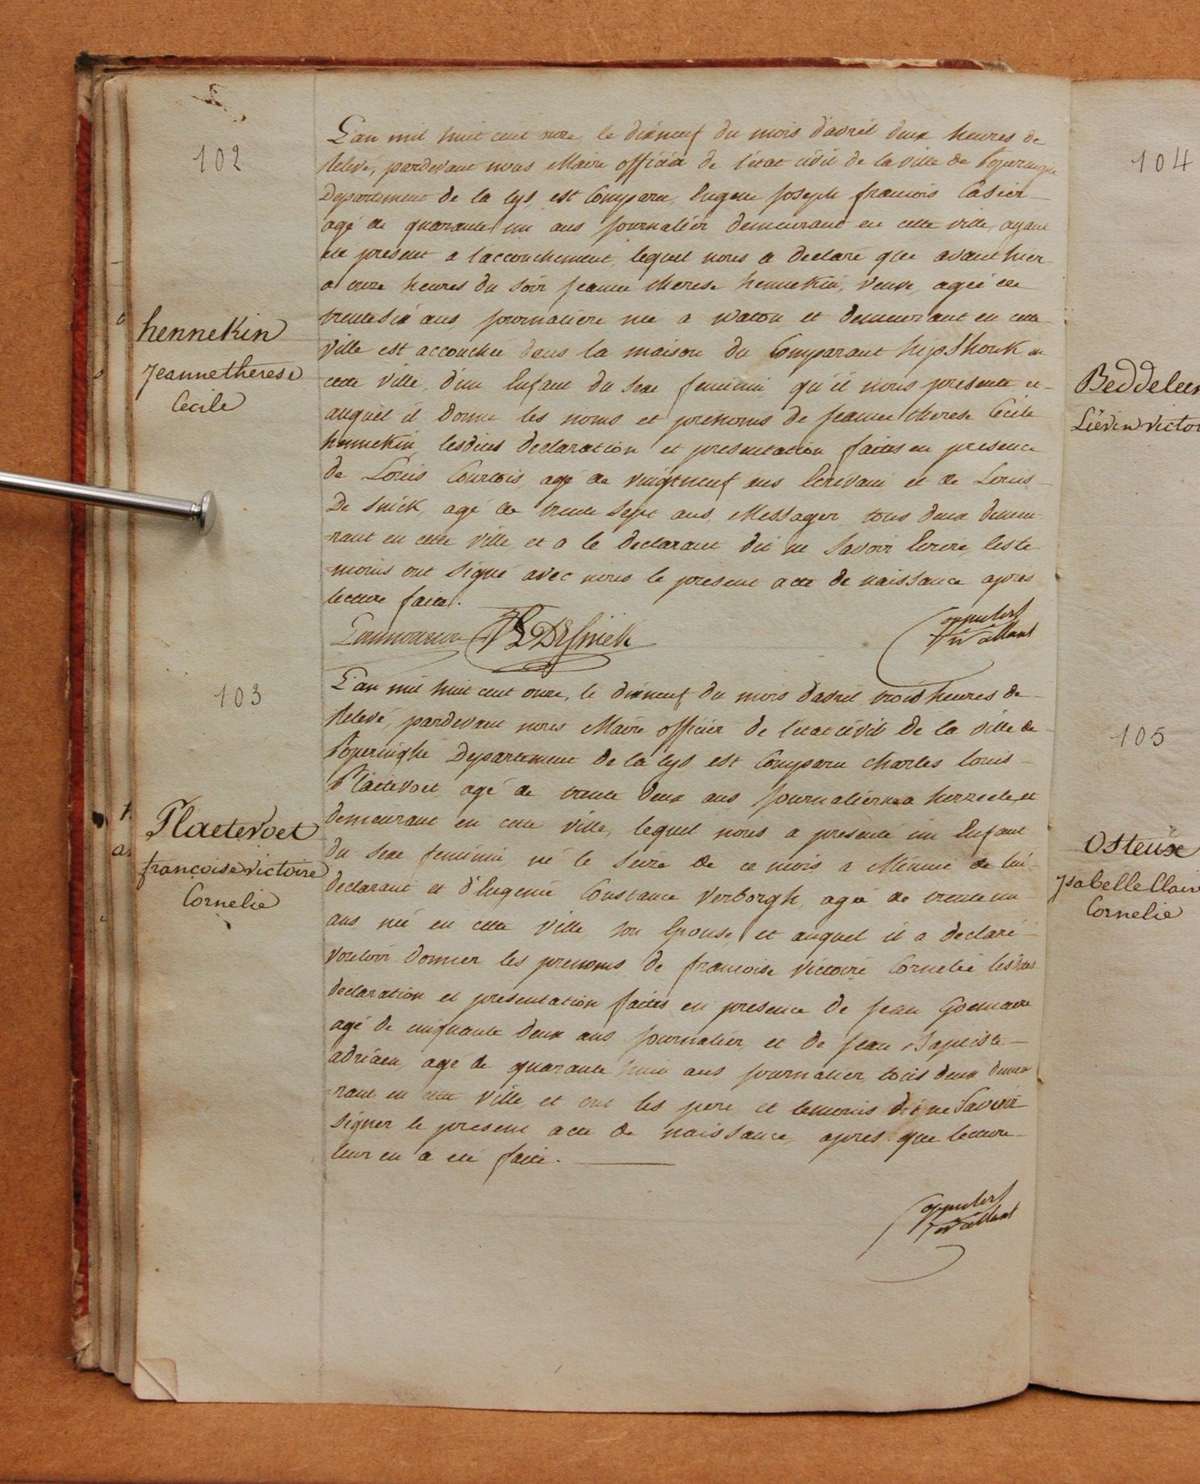 102
hennekin
Jeanne therese
Cecile
L'an mil huit cent onze, le dixneuf du mois d'avril deux heures de
relevé, pardevant nous Maire officier de l'etat civil de la ville de Poperinghe
Departement de la Lys est Comparu, Eugene Joseph francois Casier
agé de quarante un ans Journalier demeurant en cette ville, ayant
été present a l'accouchement, lequel nous a declaré que avant hier
a onze heures du soir Jeanne therese hennekin, veuve, agée de
trente six ans journaliere née a Watou et demeurant en cette
ville est accouchée dans la maison du Comparant en
cette ville, d'un Enfant du sexe feminin qu'il nous presente et
auquel il donne les noms et prenoms de Jeanne therese Cecile
hennekin, lesdites declaration et presentation faites en presence
de Louis Courtois, agé de vingtneuf ans Ecrivain et de Louis
De Snick, agé de trente sept ans, Messager, tous deux demeu-
rant en cette ville et a le declarant dit ne savoir Ecrire, les te-
moins ont signé avec nous le present acte de naissance apres
lecture faite.
L DeSnick
103
Plaetevoet
françoise victoire
Cornelie
L'an mil huit cent onze, le dixneuf du mois d'avril trois heures de
Relevé, pardevant nous Maire officier de l'etat civil de la ville de
Poperinghe Departement de la Lys est Comparu Charles Louis
Plaetevoet, agé de trente deux ans Journalier né a herzeele et
demeurant en cette ville, lequel nous a presenté un Enfant
du sexe feminin né le seize de ce mois a de lui
declarant et d'Eugenie Constance Verborgh, agée de trente un
ans née en cette ville son Epouse, et auquel il a declaré
vouloir donner les prenoms de francoise victoire Cornelie lesdites
declaration et presentation faites en presence de Jean
agé de cinquante deux ans Journalier et de Jean Baptiste
adriaen, agé de quarante ans journalier, tous deux demeu-
rant en cette ville, et ont les pere et temoins dit ne savoir
signer le present acte de naissance, apres que lecture
leur en a été faite.
104
Beddeleem
Liévin victor
105
Osteux
Isabelle Clair
Cornelie